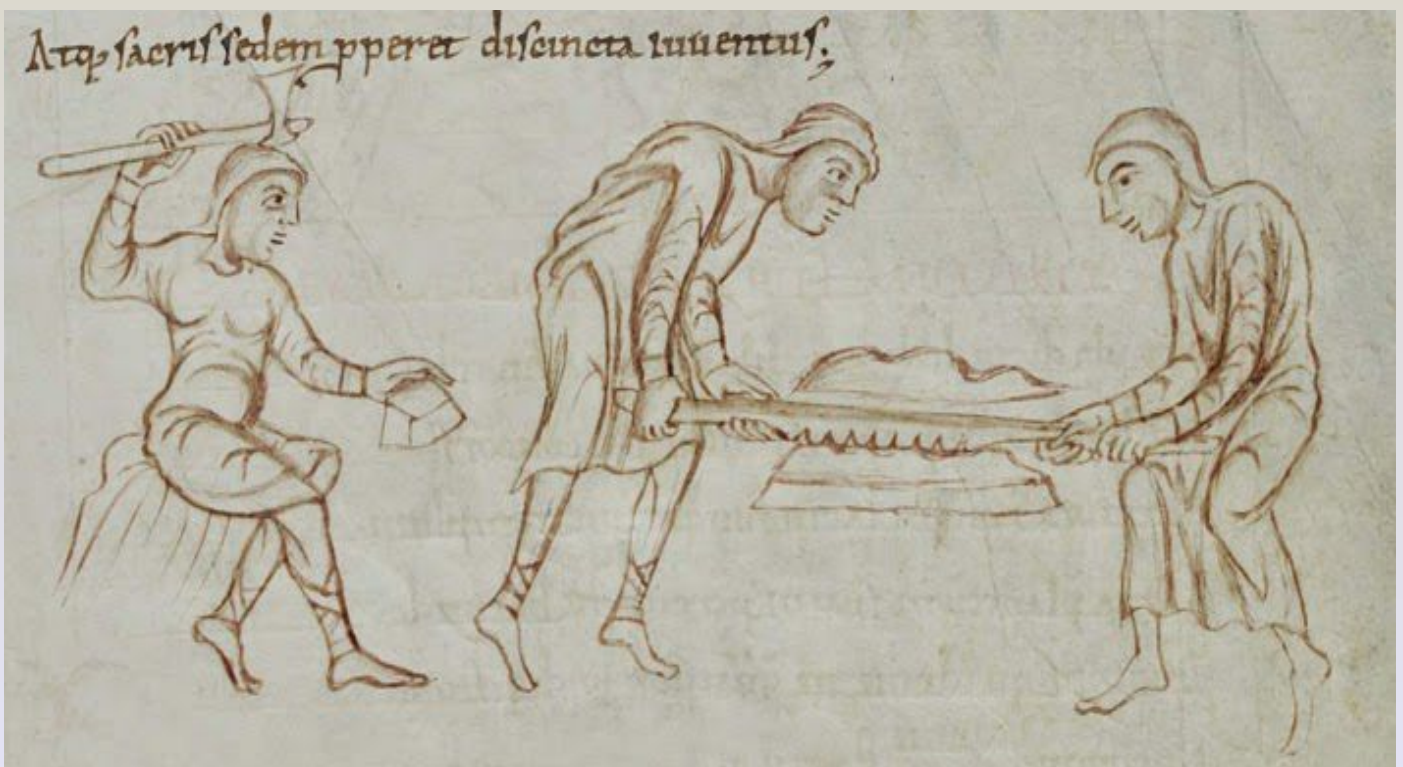 Atq; sacris sedem pperet discincta iuuentus;